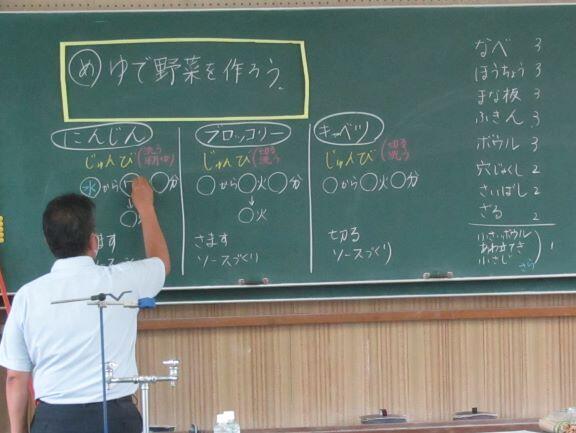 め ゆで野菜を作ろう。
にんじん
じゅんび
洗う
水から○ ○分
↓
ます
ブロッコリー
じゅんび
切る
洗う
○から○火○分
↓
○火
さます
ソースづくり
キャベツ
じゅんび
切る
洗う
○から○火○分
切る
ソースづくり
なべ 3
ほうちょう 3
まな板 3
ふきん 3
ボウル 3
穴じゃくし 2
さいばし 2
ざる 2
小さいボウル
あわ立てき
小さじ
1
さら